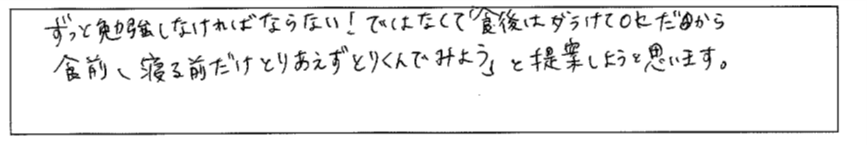 ずっと勉強しなければならない!ではなくて「食後はダラけてOKだから
食前、寝る前だけとりあえずとりくんでみよう」と提案しようと思います。